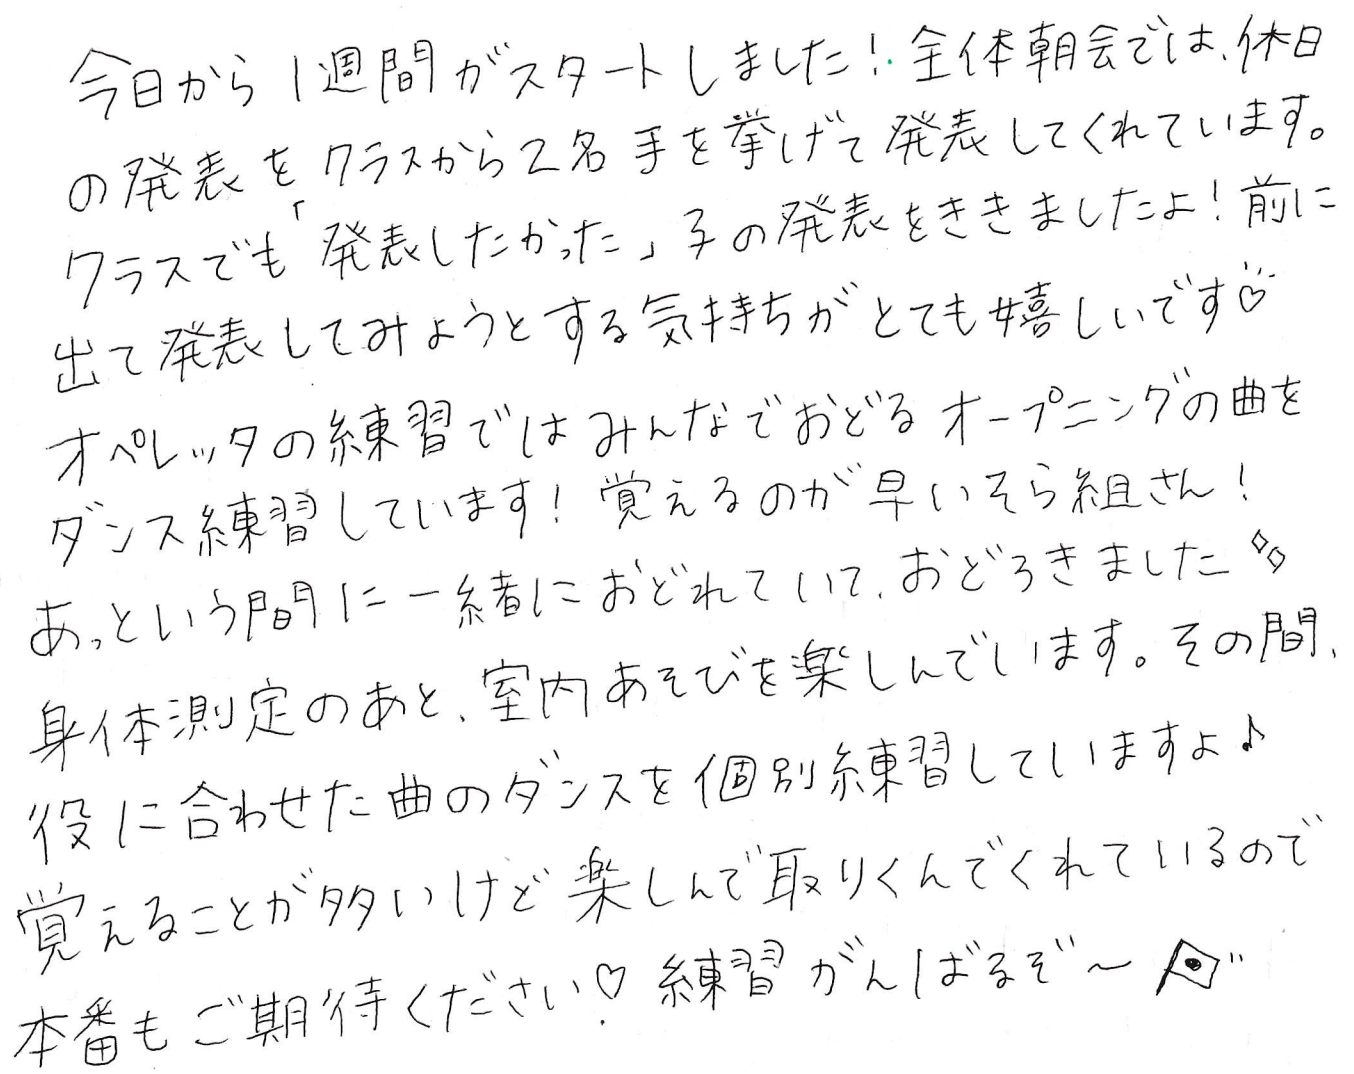 今日から1週間がスタートしました!全体朝会では、休日
の発表をクラスから2名手を挙げて発表してくれています。
クラスでも「発表したかった」子の発表をききましたよ!前に
出て発表してみようとする気持ちがとても嬉しいです♡
オペレッタの練習ではみんなでおどるオープニングの曲を
ダンス練習しています!覚えるのが早いそら組さん!
あっという間に一緒におどれていて、おどろきました
身体測定のあと、室内あそびを楽しんでいます。その間、
役に合わせた曲のダンスを個別練習していますよ♪
覚えることが多いけど楽しんで取りくんでくれているので
本番もご期待ください♡練習がんばるぞ〜